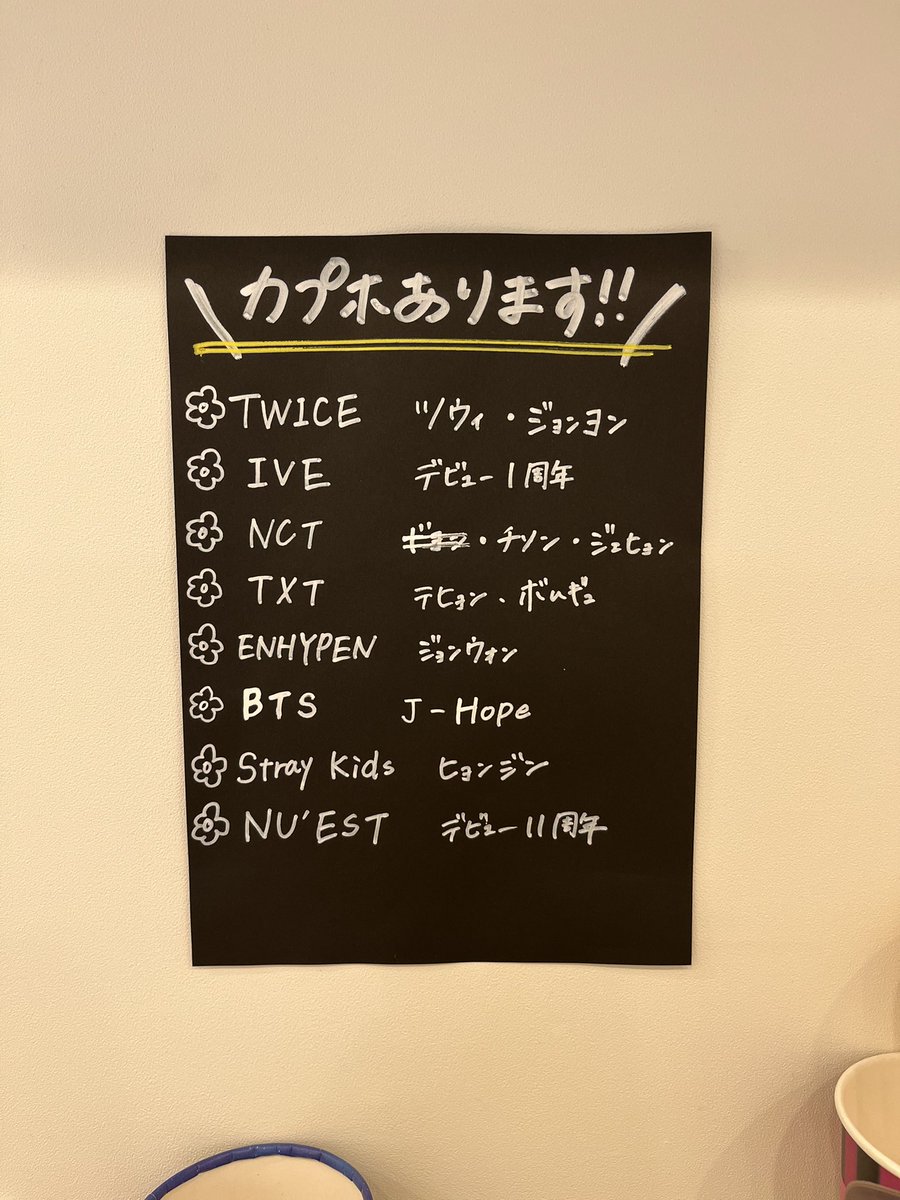 \ カプホあります!! /
TWICE ツウィ・ジョンヨン
IVE デビュー1周年
NCT ・チソン・ジェヒョン
TXT テヒョン、ボムギュ
ENHYPEN ジョンウォン
BTS J-Hope
Stray Kids ヒョンジン
NU'EST デビュー11周年